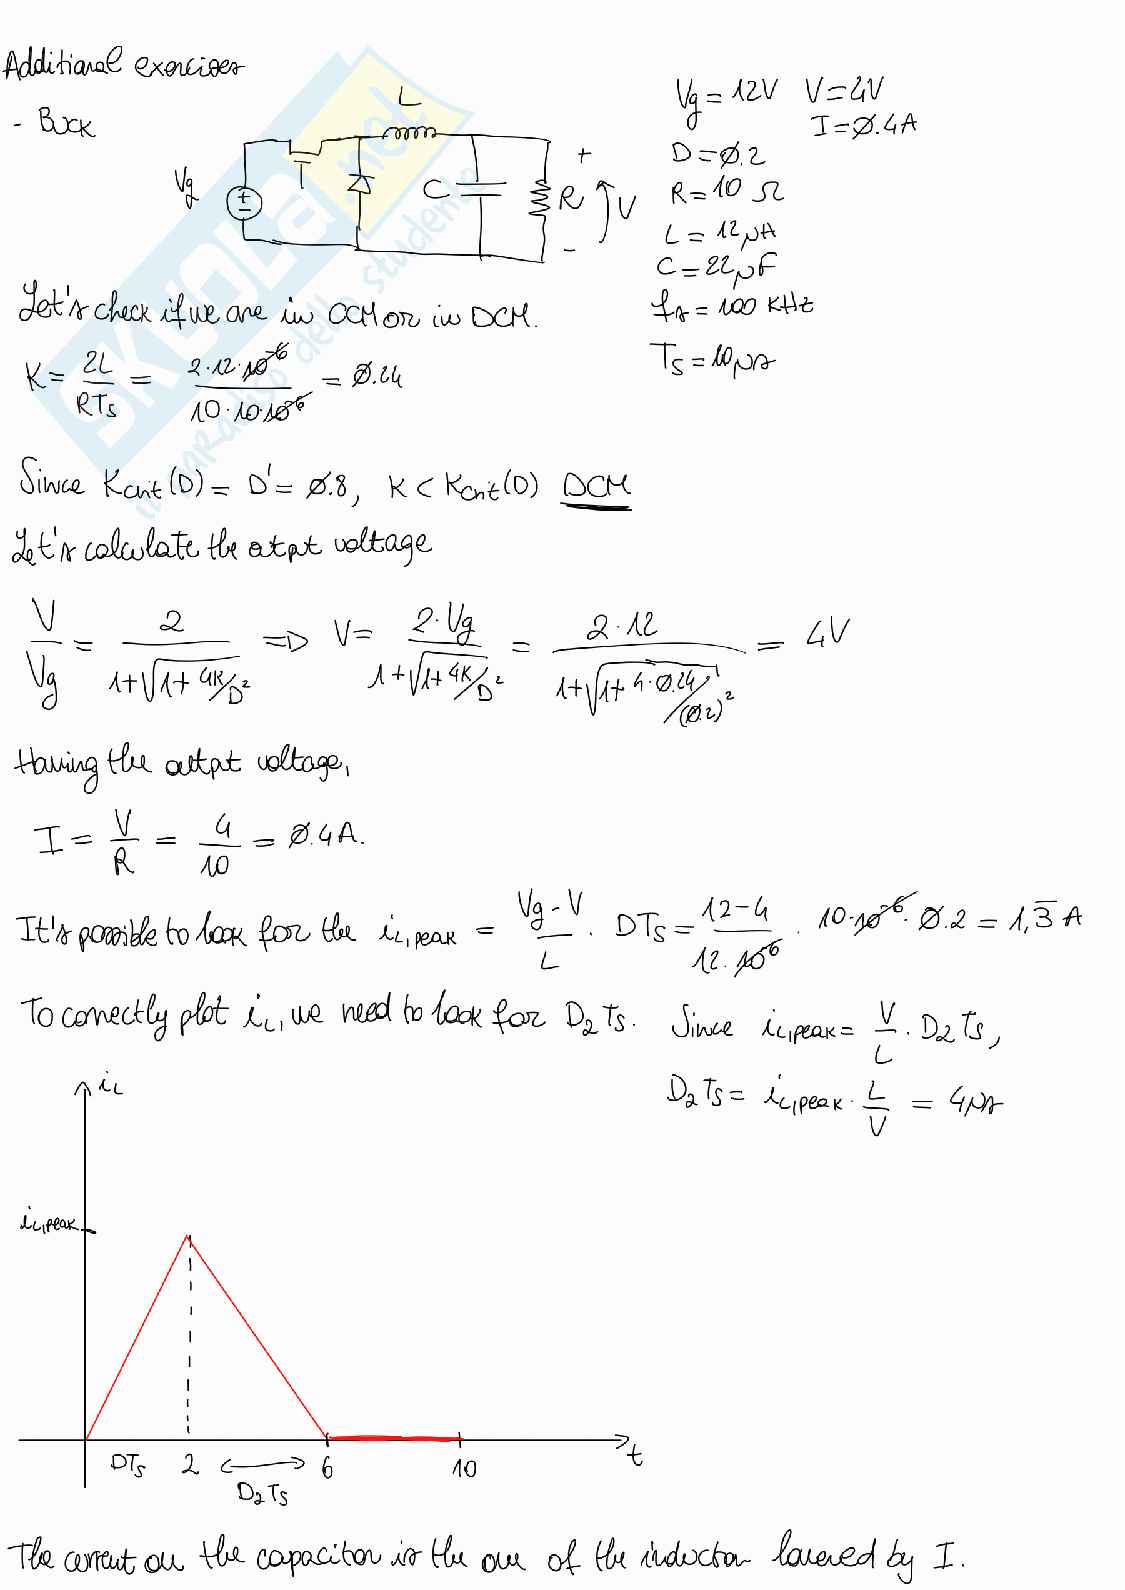 Additional exercises
- Buck
Vg = 12V V = 4V
I = 0.4A
D = 0.2
R = 10 Ω
L = 12 μA
C = 22 μF
fs = 100 KHz
Ts = 10 μs
L
Vg
C
+
R
V
-
Let's check if we are in CCM or in DCM.
K = 2L / RTs = 2·12·10^-6 / 10·10·10^-6 = 0.24
Since Kcrit(D) = D' = 0.8, K < Kcrit(D) DCM
Let's calculate the otpt voltage
V / Vg = 2 / 1+√1+4K/D² => V = 2·Vg / 1+√1+4K/D² = 2·12 / 1+√1+4·0.24/(0.2)² = 4V
Having the outpt voltage,
I = V / R = 4 / 10 = 0.4A.
It's possible to look for the iL,peak = Vg-V / L · DTs = 12-4 / 12·10^-6 · 10·10^-6 · 0.2 = 1,3̅ A
To correctly plot iL, we need to look for D2Ts. Since iL,peak = V / L · D2Ts,
D2Ts = iL,peak · L / V = 4μs
iL
iL,peak
DTs 2 6 10 t
D2Ts
The current on the capacitor is the one of the inductor lowered by I.
SKUOLA.net
il paradiso dello studente